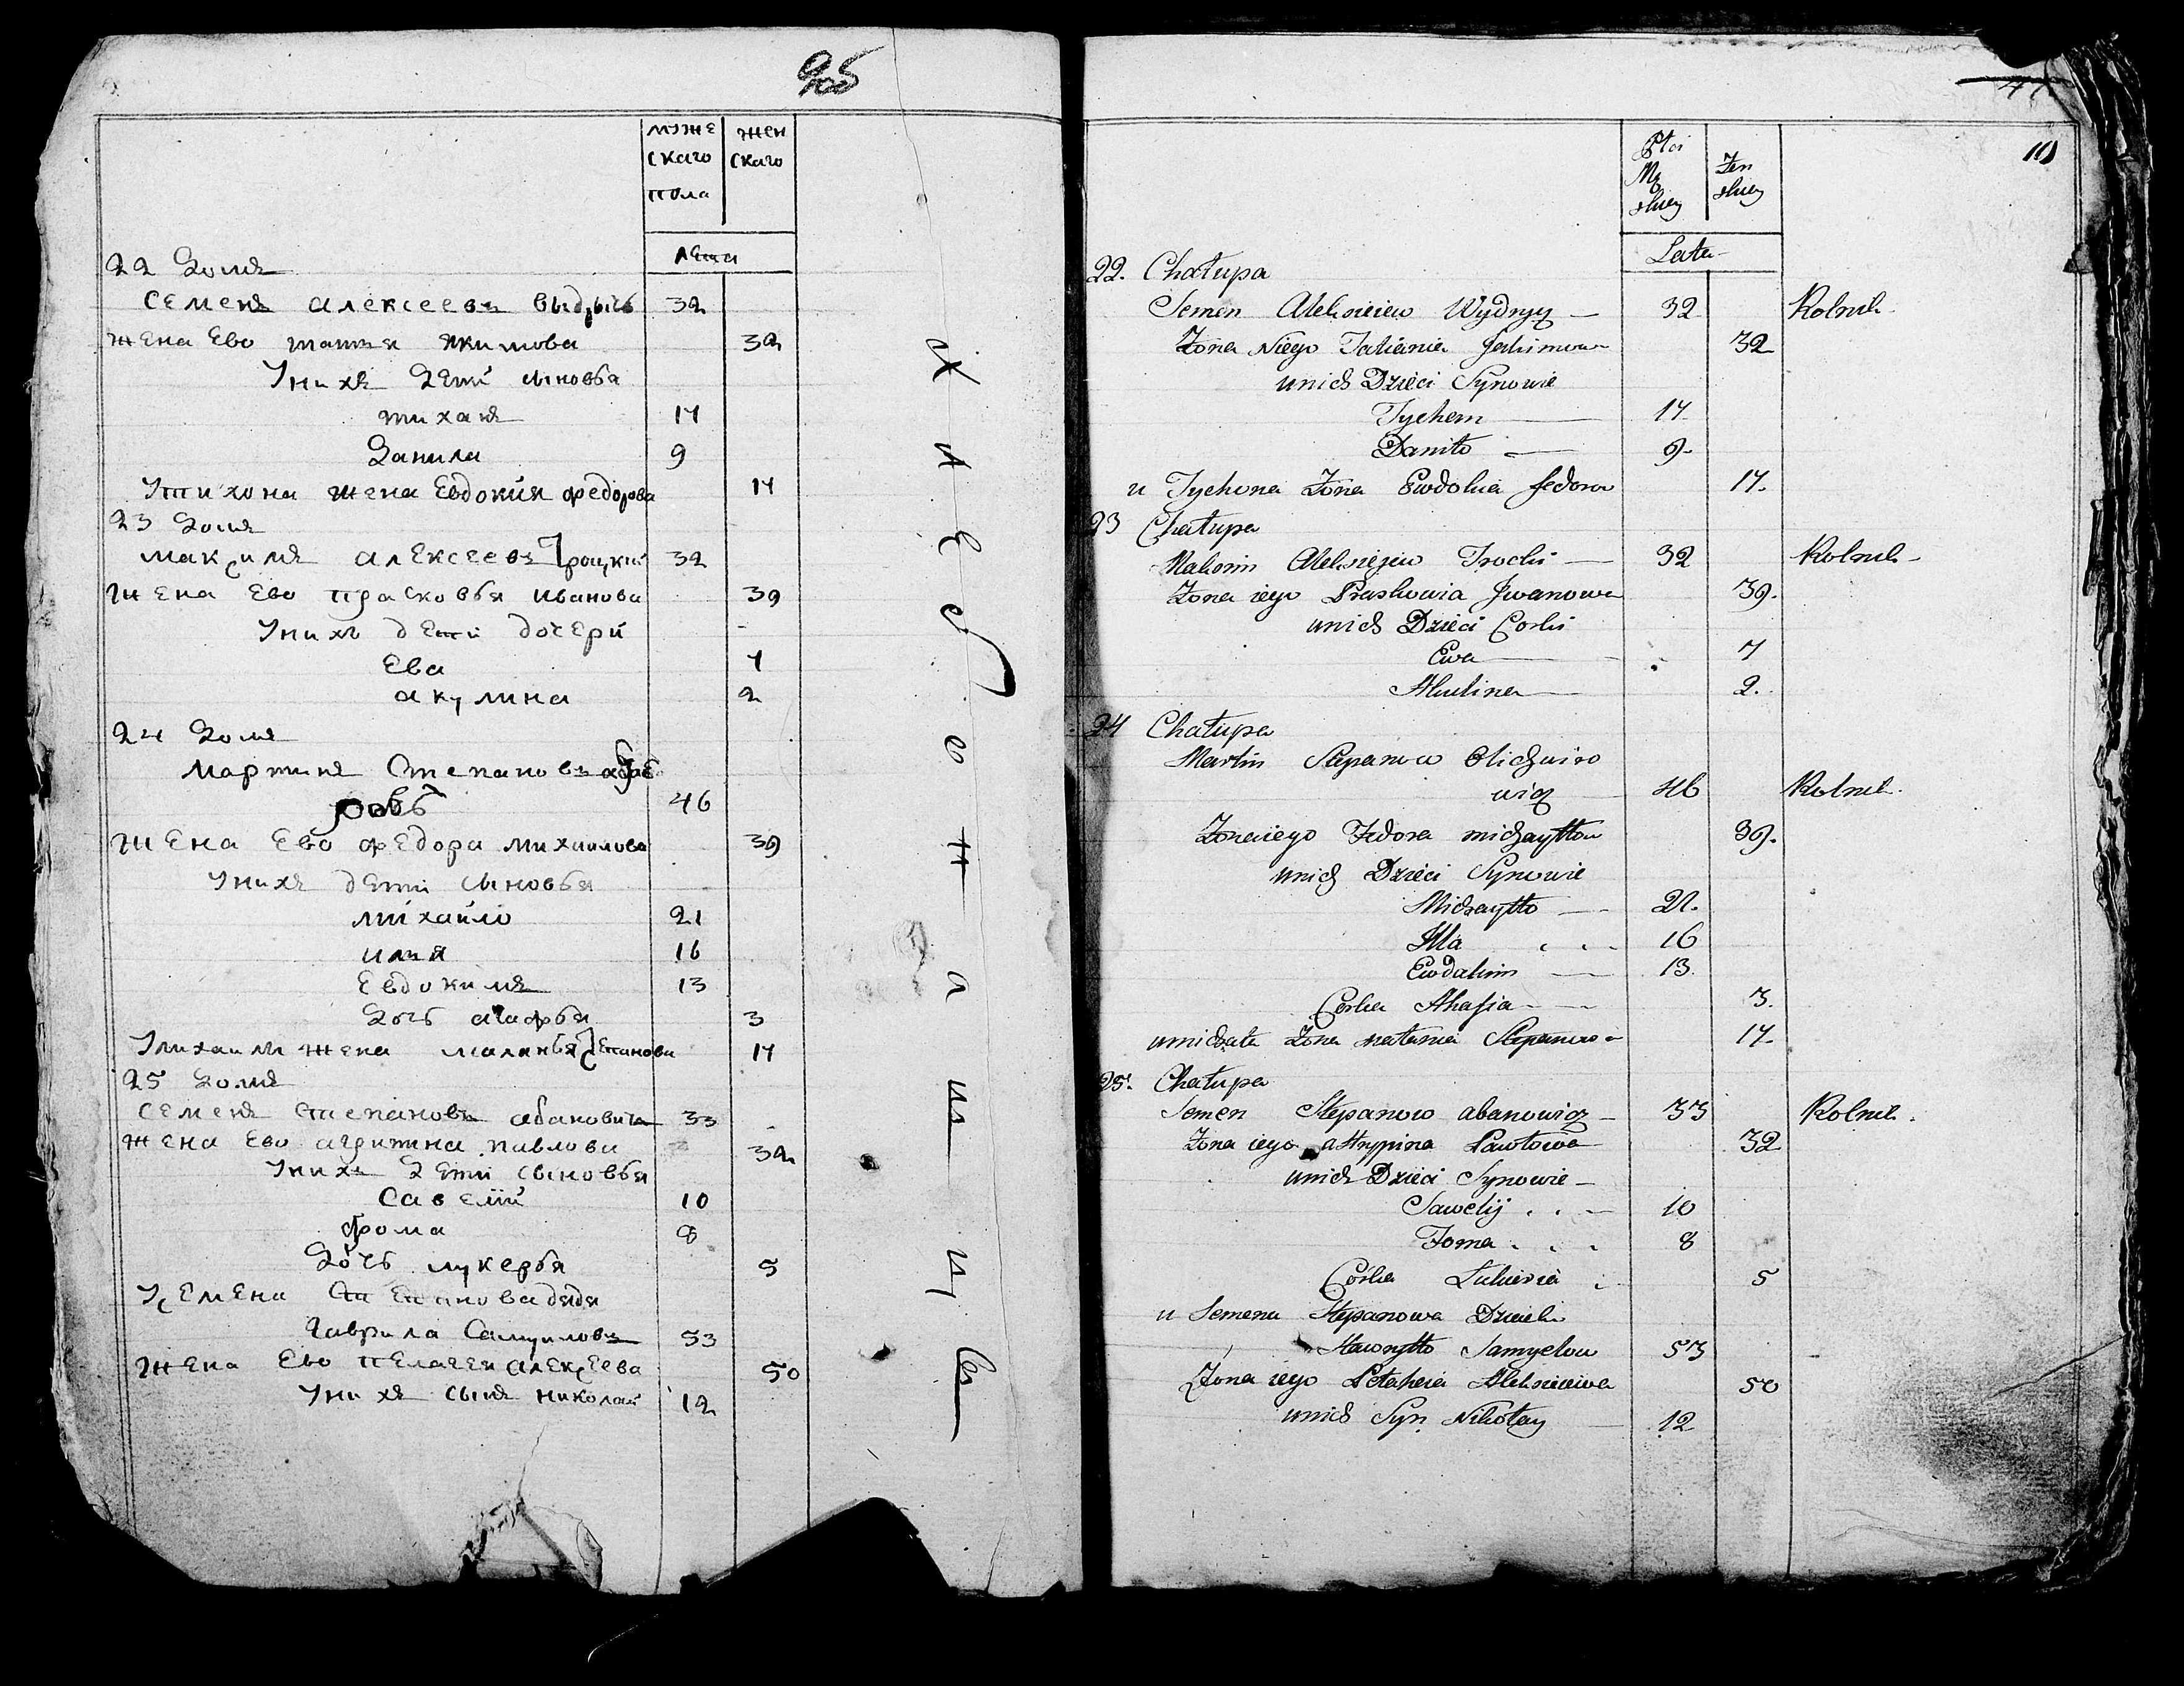 95
муже
скаго
пола
жен
скаго
лета
22 Домъ
Семенъ Алексеевъ Выдрычь 32
Жена Ево татья Якимова 32
У нихъ Дети сыновья
тихонъ 17
Данила 9
У тихона жена Евдокия Федорова 17
23 Домъ
Максимъ Алексеевъ Троцкий 32
Жена Ево Прасковья Иванова 39
У нихъ дети дочери
Ева 7
акулина 2
24 Домъ
Мартинъ Степановъ
46
Жена Ево Федора Михаилова 39
У нихъ дети сыновья
Михайло 21
илья 16
Евдокимъ 13
Дочь агафья 3
У михаилы жена маланья Степанова 17
25 Домъ
Семенъ Степановъ абановичъ 33
Жена Ево агрипина павлова 32
У нихъ Дети сыновья
Савелий 10
Фома 8
Дочь лукерья 5
У Семена Степанова дядя
Гаврила Самуиловъ 53
Жена Ево Пелагея алексеева 50
У нихъ сынъ николай 12
Хлебопашцы
47
10
Płci
Mę
skiey
Żen
skiey
Lata
22. Chałupa
Semen Alexieiew Wydrycz — 32 Rolnik
Żona Niego Tatiania Jakimowa 32
unich Dzieci Synowie
Tychon 17
Daniło 9
u Tychona Żona Ewdokia fedorow 17.
23 Chałupa
Maksim Aleksiejew Trocki — 32 Rolnik
Żona iego Praskowia Jwanowa 39.
unich Dzieci Corki
Ewa 7
Akulina 2.
24 Chałupa
Martin Stepanow Olichwiro
wicz 46 Rolnik.
Żona iego Fedora michayłow 39.
unich Dzieci Synowie
Michayłło 21.
Illa 16
Ewdakim 13.
Corka Ahafia 3.
umichała Żona małania Stepanowa 17.
25. Chałupa
Semen Stepanow abanowicz — 33 Rolnik.
Żona iego ahrypina Pawłowa 32
unich Dzieci Synowie —
Sawelij 10
Foma 8
Córka Łukieria 5
u Semena Stepanowa Dziadzka
Hawryłło Samyelow 53
Żona iego Pełaheia Alexieiewa 50
unich Syn Nikołay 12